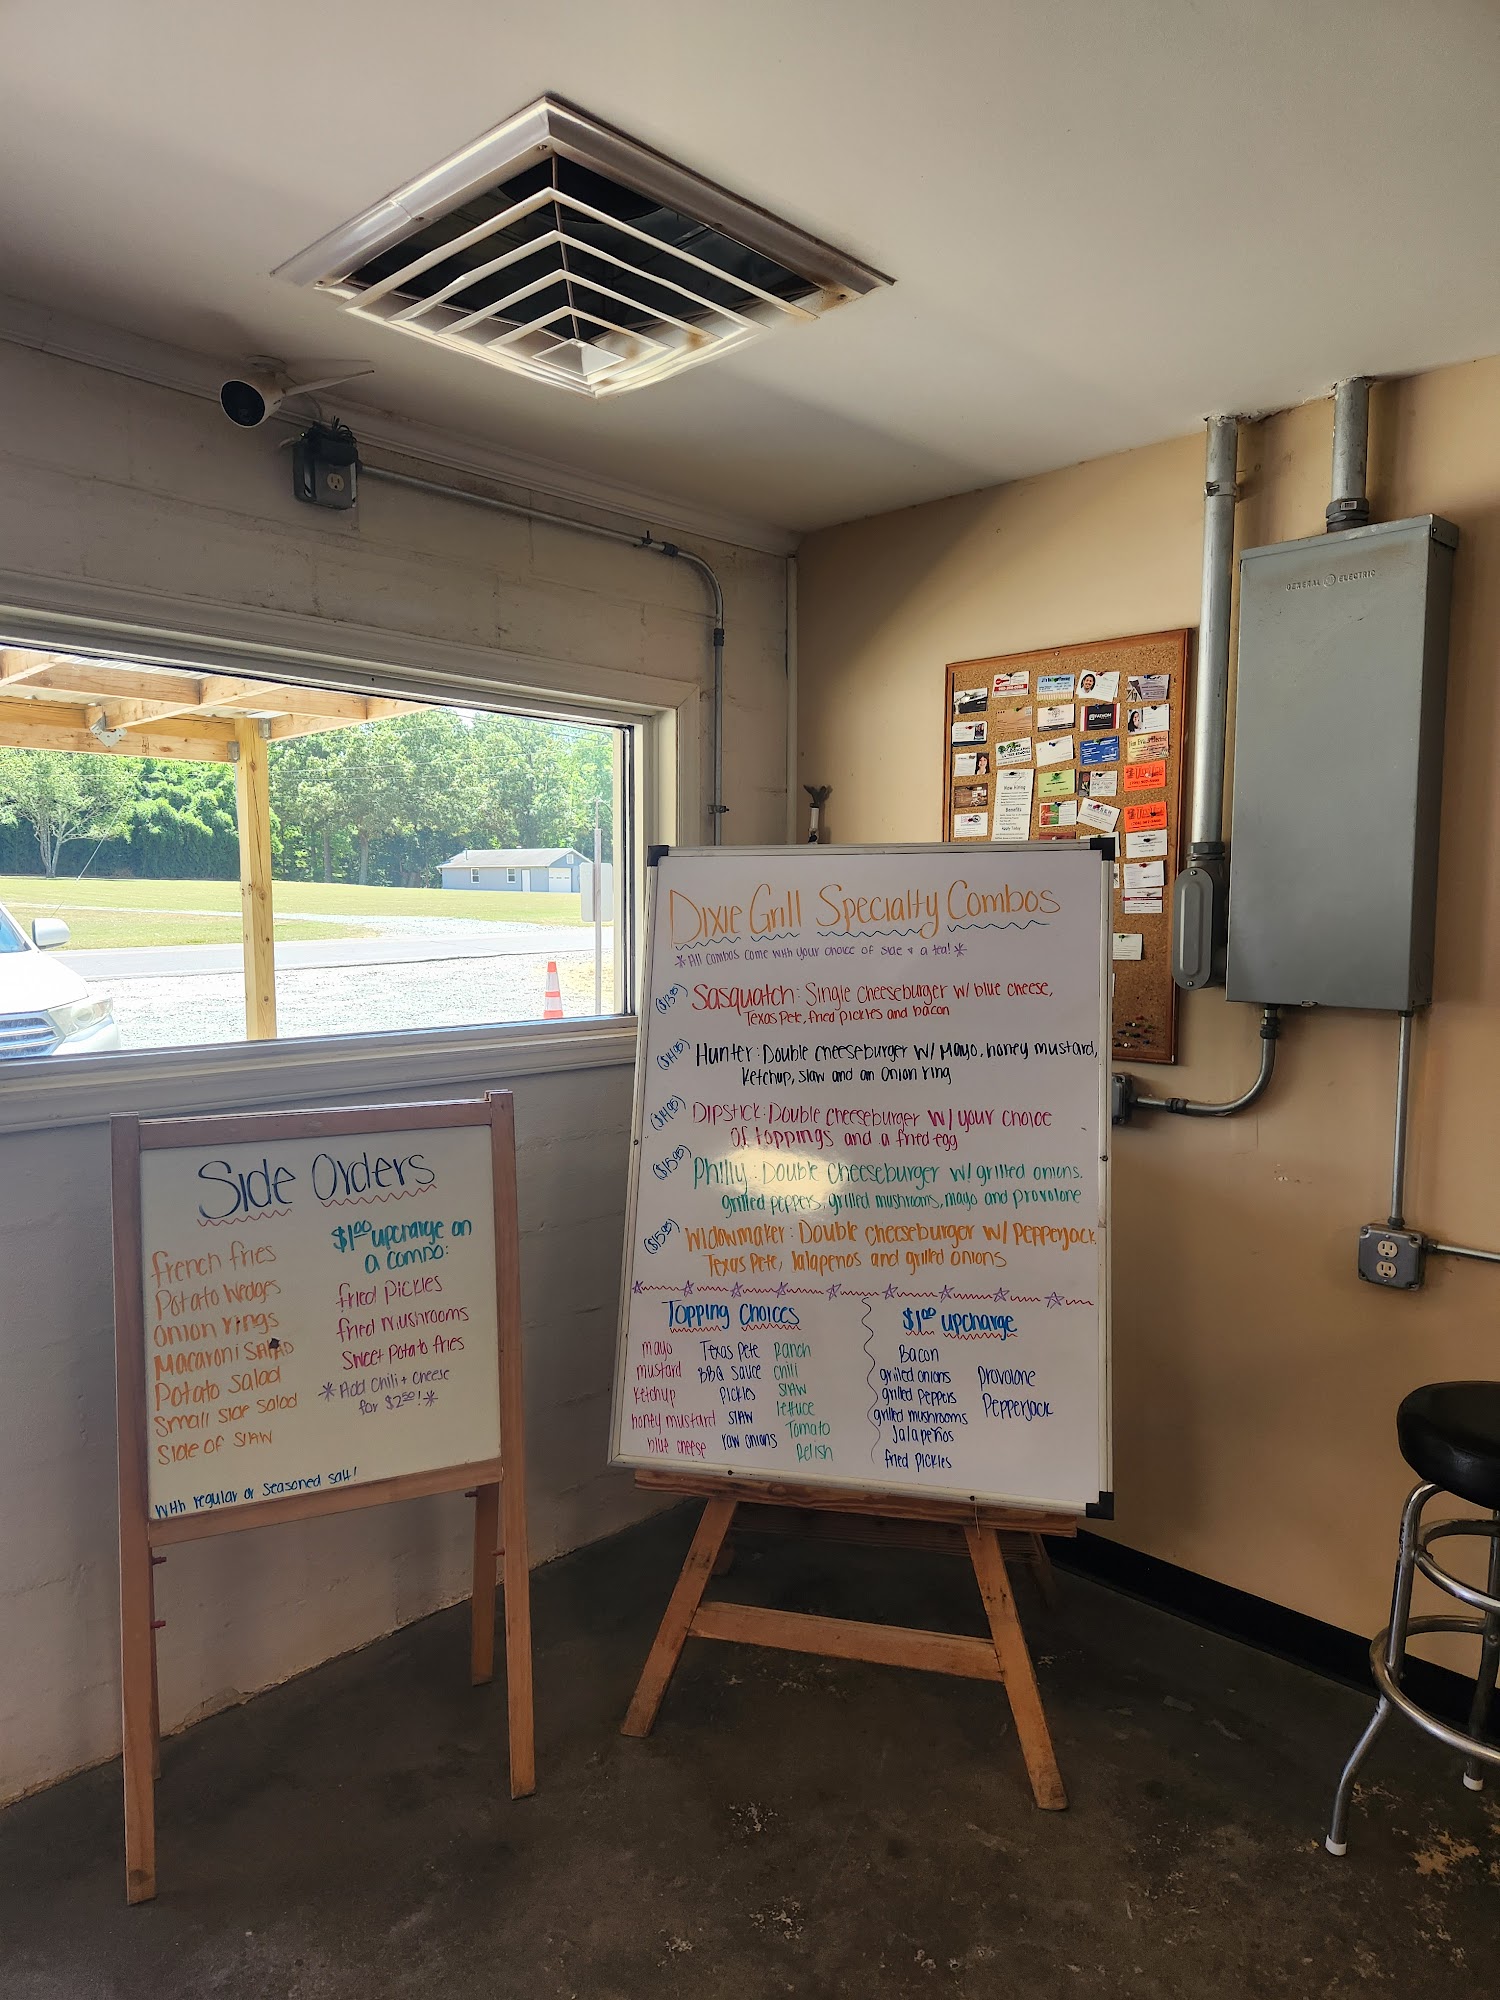 GENERAL ELECTRIC
Now Hiring
Benefits
Apply Today
Dixie Grill Specialty Combos
*All combos come with your choice of side & a tea!*
($13.95) Sasquatch: Single cheeseburger w/ blue cheese,
Texas Pete, fried pickles and bacon
($14.95) Hunter: Double cheeseburger w/ Mayo, honey mustard,
ketchup, slaw and an onion ring
($14.95) Dipstick: Double cheeseburger w/ your choice
of toppings and a fried egg
($15.95) Philly: Double cheeseburger w/ grilled onions.
grilled peppers, grilled mushrooms, mayo and provolone
($15.95) Widowmaker: Double cheeseburger w/ Pepperjack,
Texas Pete, Jalapeños and grilled onions
Topping Choices
mayo
mustard
ketchup
honey mustard
blue cheese
Texas Pete
BBQ sauce
pickles
slaw
raw onions
Ranch
chili
slaw
lettuce
Tomato
Relish
$1.00 upcharge
Bacon
grilled onions
grilled peppers
grilled mushrooms
Jalapeños
fried pickles
provolone
Pepperjack
Side Orders
french fries
Potato wedges
onion rings
Macaroni Salad
Potato salad
Small side salad
Side of slaw
$1.00 upcharge on
a combo:
fried pickles
fried mushrooms
Sweet potato fries
*Add chili + cheese
for $2.50!*
with regular or seasoned salt!